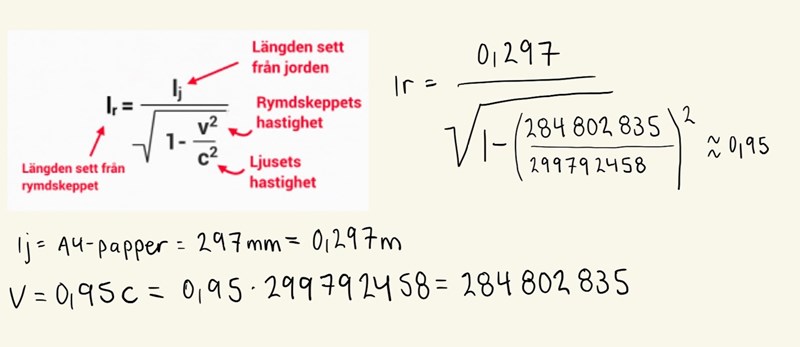 Längden sett
från jorden
lᵣ = lⱼ / √(1 - v²/c²)
Rymdskeppets
hastighet
Längden sett från
rymdskeppet
Ljusets
hastighet
lr = 0,297 / √(1 - (284 802 835 / 299792458)²) ≈ 0,95
lj = A4-papper = 297mm = 0,297m
V = 0,95c = 0,95 · 299792458 = 284 802 835